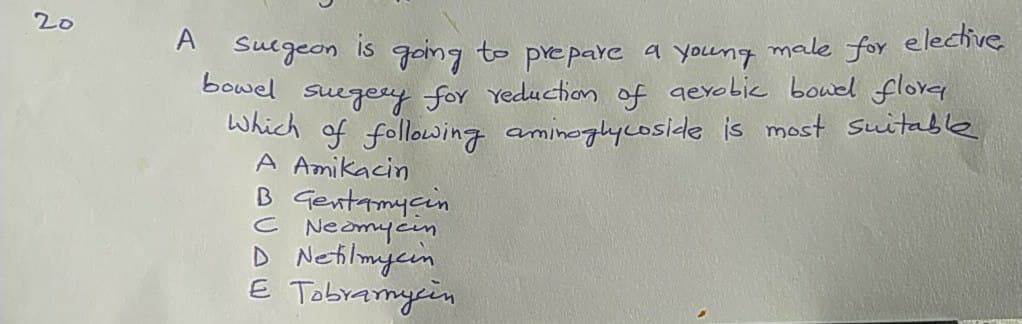 20
A surgeon is going to prepare a young male for elective
bowel surgery for reduction of aerobic bowel flora
Which of following aminoglycoside is most suitable
A Amikacin
B Gentamycin
C Neomycin
D Netilmycin
E Tobramycin